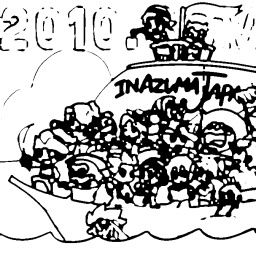 2010.
INAZUMA JAPA